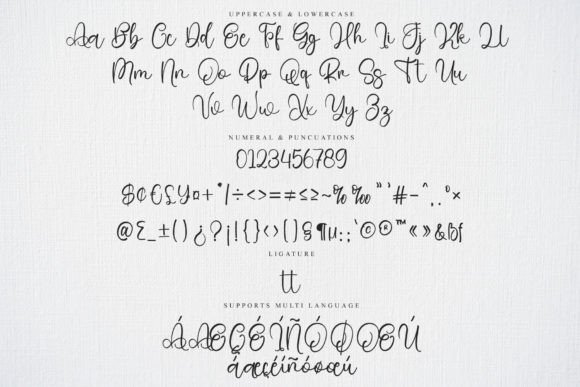 UPPERCASE & LOWERCASE
Aa Bb Cc Dd Ee Ff Gg Hh Ii Jj Kk Ll
Mm Nn Oo Pp Qq Rr Ss Tt Uu
Vv Ww Xx Yy Zz
NUMERAL & PUNCUATIONS
0123456789
$¢€£¥¤+*/÷<>=≠≤≥~%‰"'#-^,.°×
@{_±()¿?¡!{}‹›[]§¶µ:;`©®™«»&
LIGATURE
tt
SUPPORTS MULTI LANGUAGE
ÁÆÇÉÍÑÓØŒÚ
áæçéíñóøœú